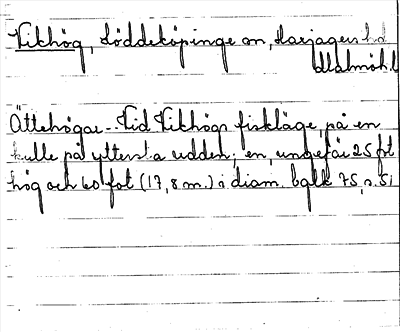 Vikhög, Löddeköpinge sn, Harjagers hd
Malmöh.l
Ättehögar.- Vid Vikhögs fiskläge, på en
kulle på yttersta udden; en, ungefär 25 fot
hög och 60 fot (17,8 m.) i diam. bglk 75, s. 51